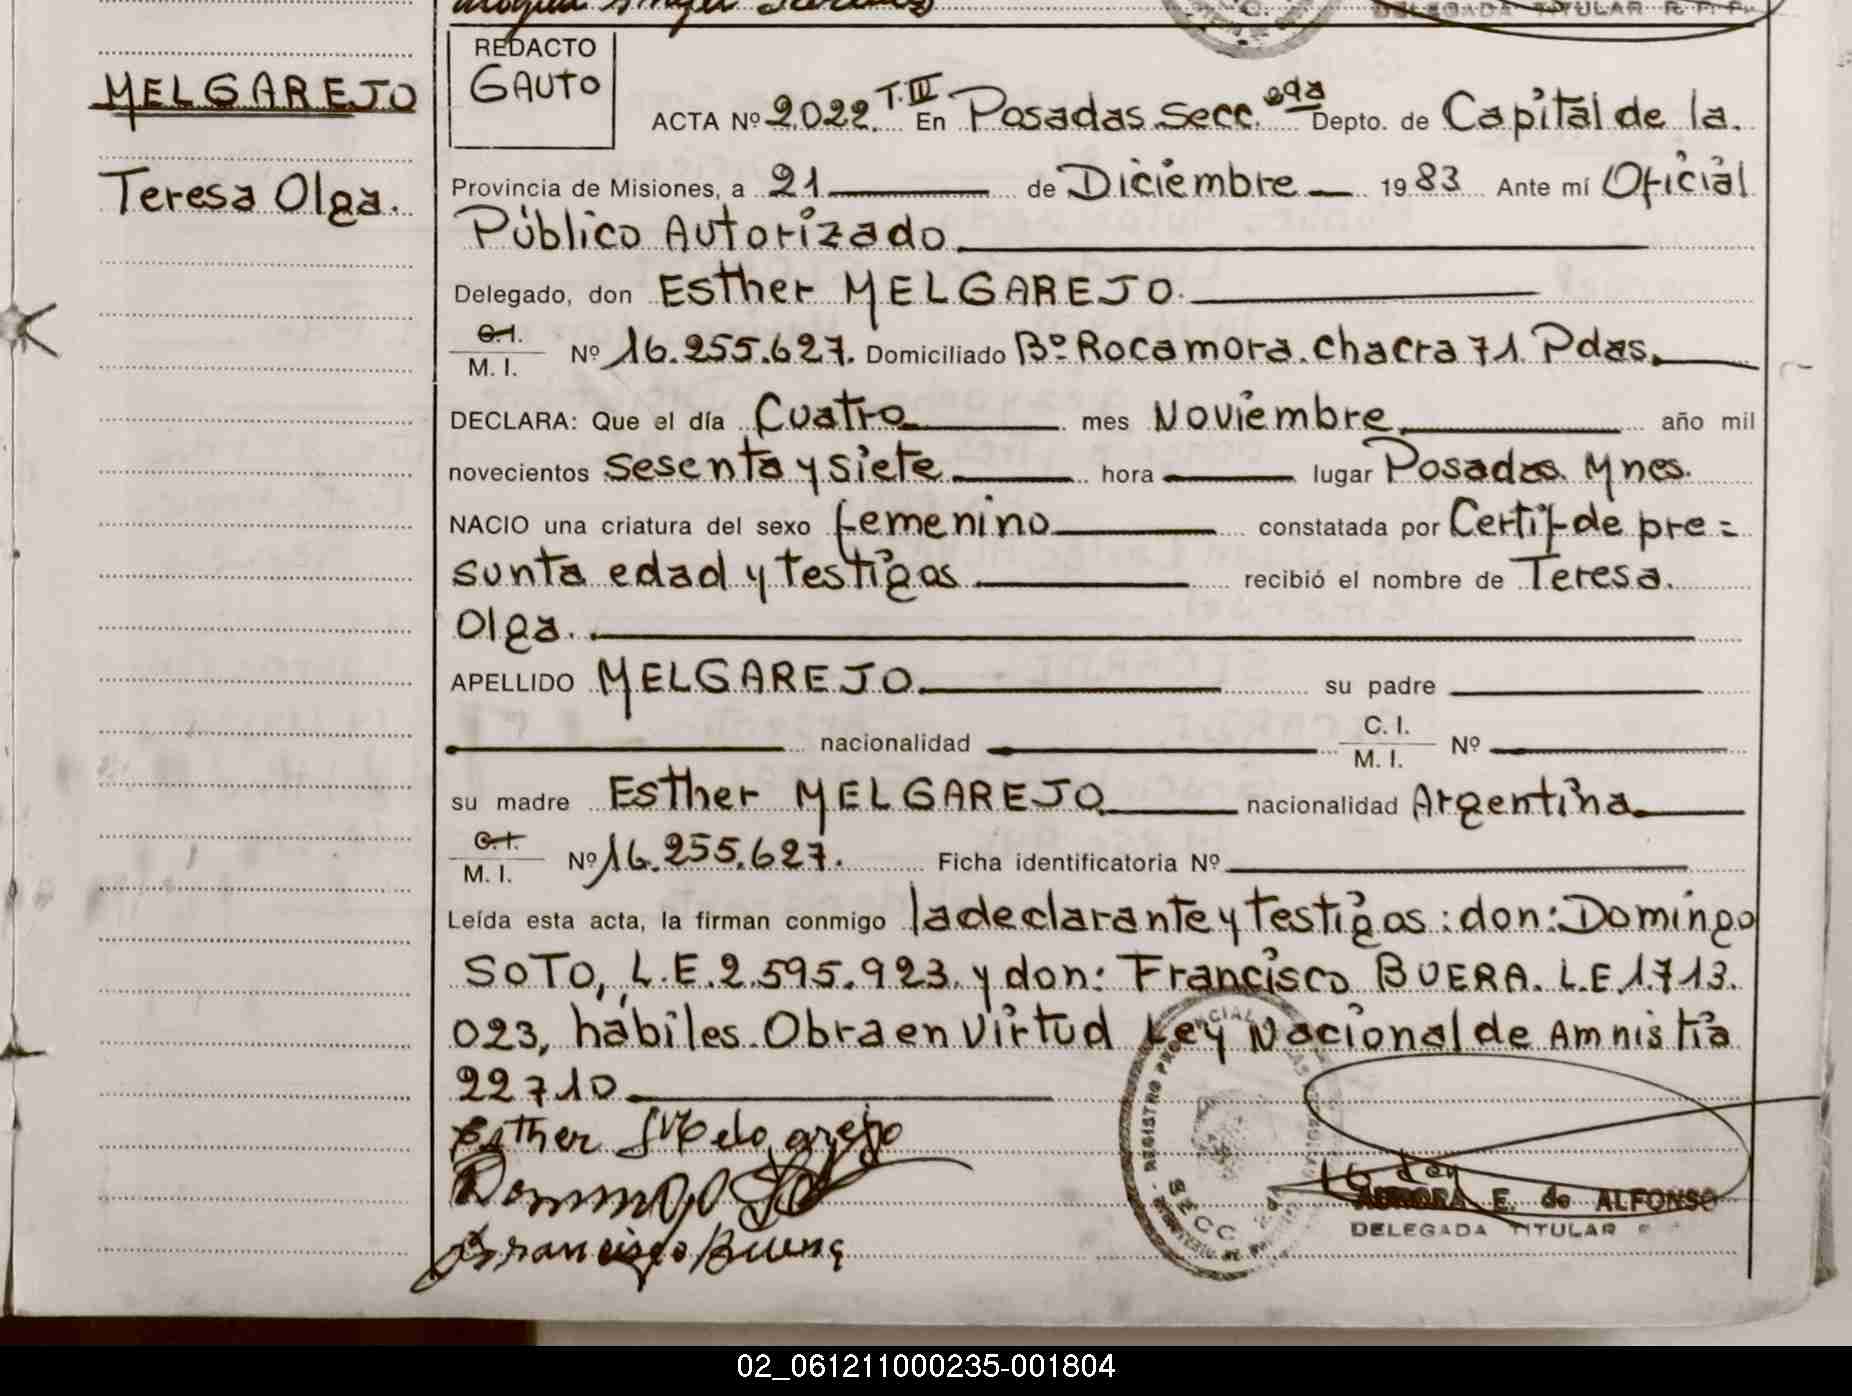 DELEGADA TITULAR R. P. P.
MELGAREJO
Teresa Olga.
REDACTO
GAUTO
ACTA Nº 2022 T.III En Posadas Secc. 2da Depto. de Capital de la
Provincia de Misiones, a 21 de Diciembre 1983 Ante mí Oficial
Público Autorizado
Delegado, don Esther MELGAREJO.
C.I.
M. I. Nº 16.255.627. Domiciliado Bº Rocamora. chacra 71. Pdas.
DECLARA: Que el día Cuatro mes Noviembre año mil
novecientos Sesenta y siete hora lugar Posadas Mnes.
NACIO una criatura del sexo femenino constatada por Certif-de pre=
sunta edad y testigos recibió el nombre de Teresa.
Olga.
APELLIDO MELGAREJO su padre
nacionalidad C. I.
M. I. Nº
su madre Esther MELGAREJO nacionalidad Argentina
C.I.
M. I. Nº 16.255.627. Ficha identificatoria Nº
Leída esta acta, la firman conmigo la declarante y testigos: don: Domingo
SOTO, L.E. 2.595.923. y don: Francisco BUERA. L.E. 1.713.
023, hábiles. Obra en virtud Ley Nacional de Amnistia
22710
Esther Melgarejo
Domingo Soto
Francisco Buera
REGISTRO PROVINCIAL
SECC. 2
AURORA E. de ALFONSO
DELEGADA TITULAR
02_061211000235-001804